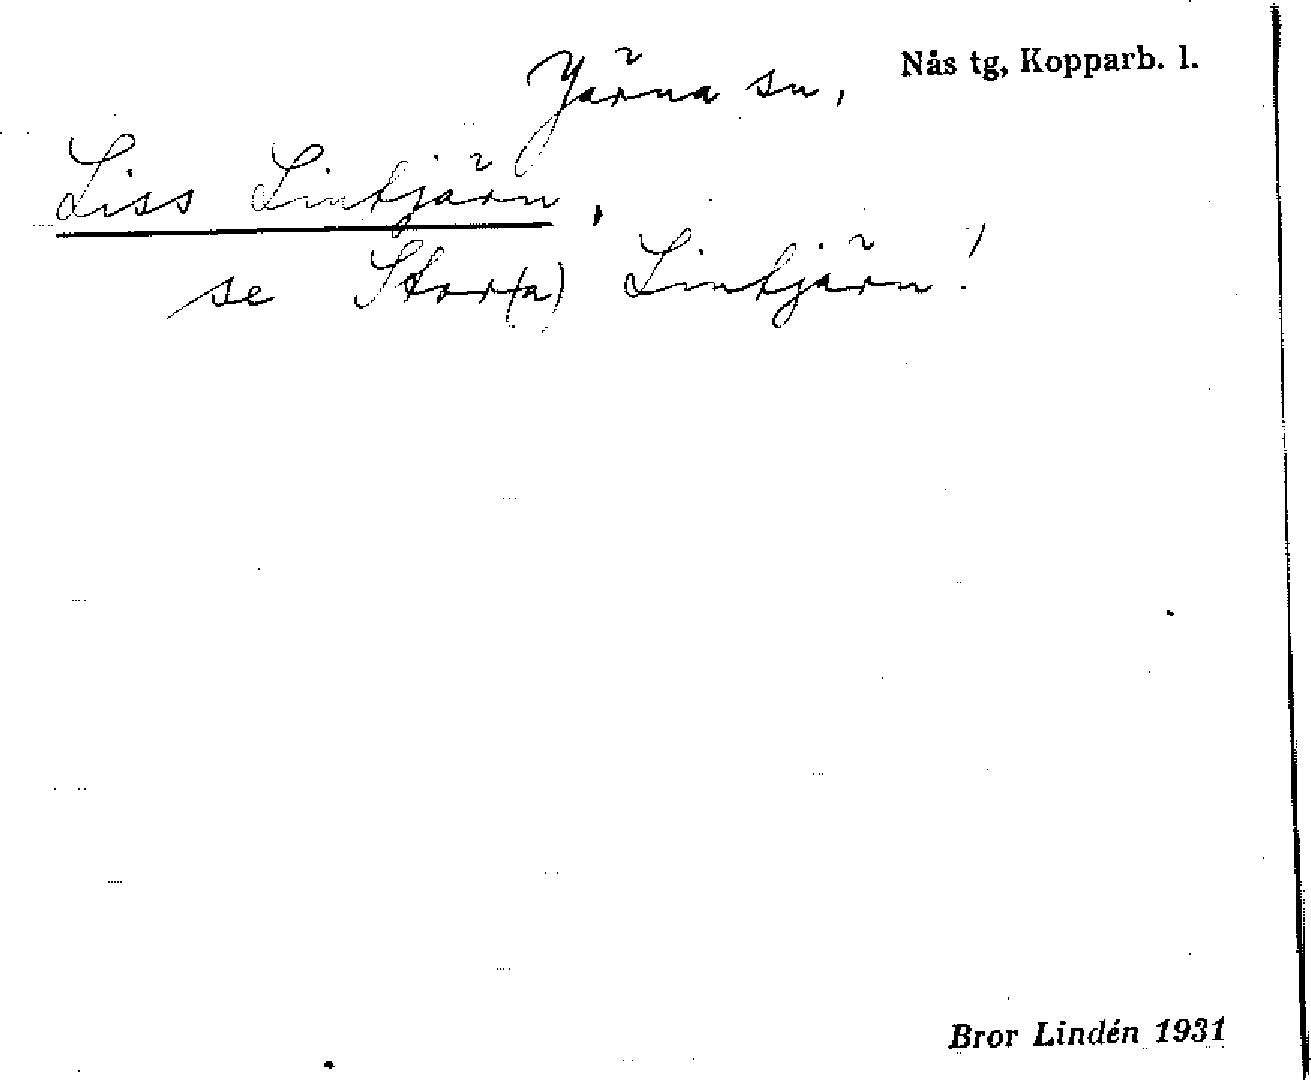 Järna sn, Nås tg, Kopparb. l.
Liss Lintjärn,
se Stor(a) Lintjärn!
Bror Lindén 1931